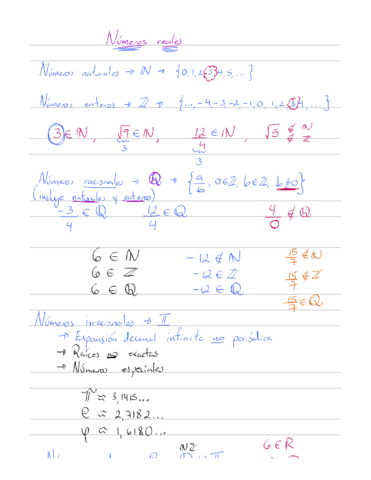 Números reales
Números naturales → ℕ → {0, 1, 2, 3, 4, 5, ...}
Números enteros → ℤ → {..., -4, -3, -2, -1, 0, 1, 2, 3, 4, ...}
3 ∈ ℕ, √9 ∈ ℕ, 12/4 ∈ ℕ, √5 ∉ ℕ ∉ ℤ
3 3
Números racionales → ℚ → {a/b, a∈ℤ, b∈ℤ, b≠0}
(incluye naturales y enteros)
-3/4 ∈ ℚ 12/4 ∈ ℚ 4/0 ∉ ℚ
6 ∈ ℕ -12 ∉ ℕ 15/7 ∉ ℕ
6 ∈ ℤ -12 ∈ ℤ 15/7 ∉ ℤ
6 ∈ ℚ -12 ∈ ℚ 15/7 ∈ ℚ
Números irracionales → 𝕀
→ Expansión decimal infinita no periódica
→ Raíces no exactas
→ Números especiales
π ≈ 3,1415...
e ≈ 2,7182...
φ ≈ 1,6180...
ℕℤ 6 ∈ R